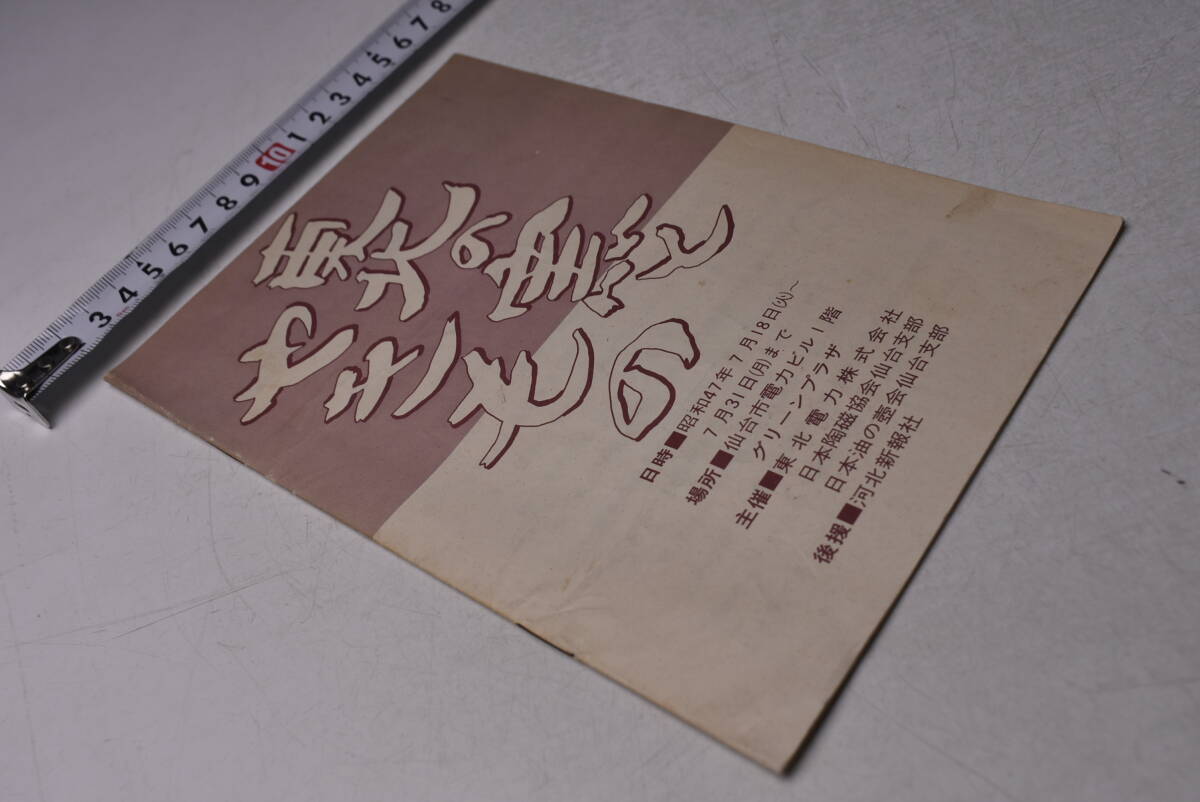 東北の窯と
やきもの
日時■昭和47年7月18日(火)~
7月31日(月)まで
場所■仙台市電力ビル1階
グリーンプラザ
主催■東北電力株式会社
日本陶磁協会仙台支部
日本油の壺会仙台支部
後援■河北新報社
3 4 5 6 7 8 9 10 1 2 3 4 5 6 7 8